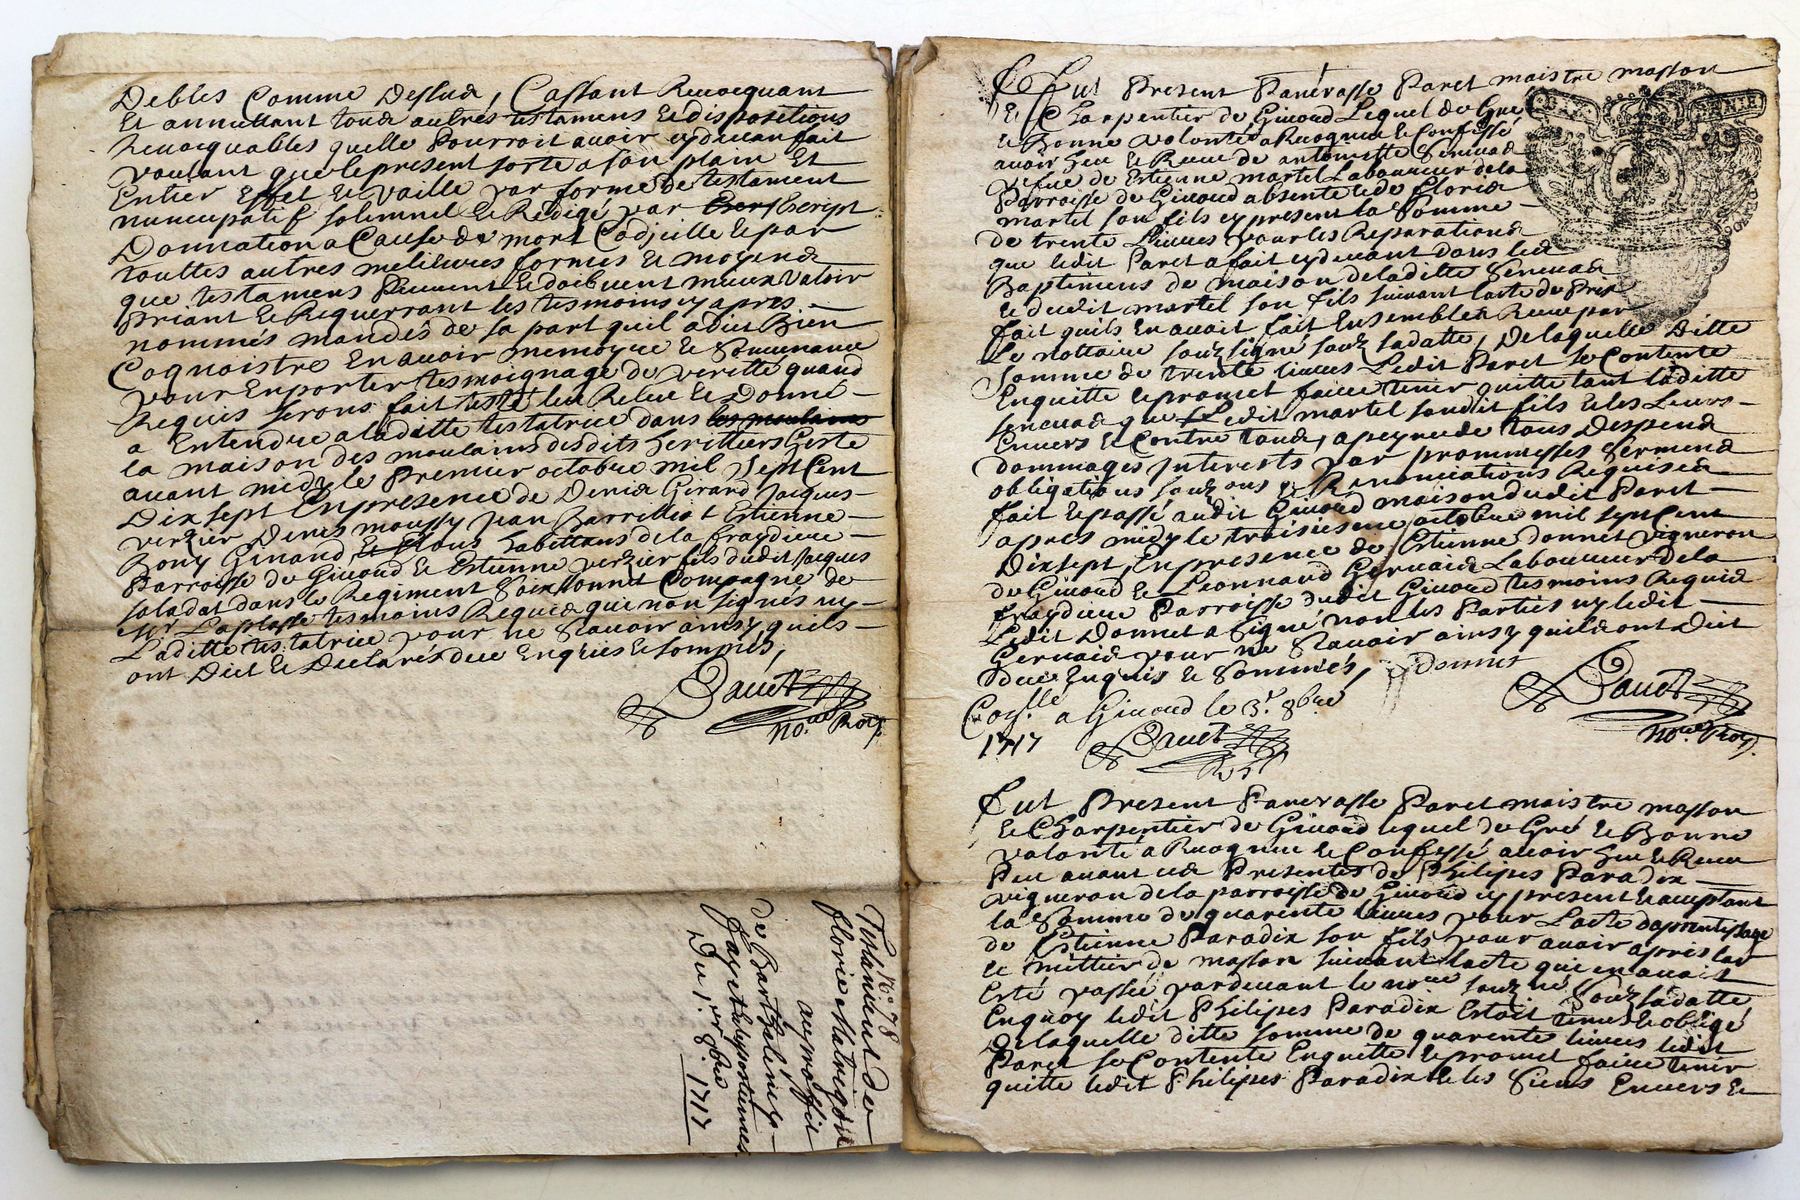 Debles Comme Dessus, Cassant Revocquant
Et annullant tous autres testamens Et dispositions
Revocquables quelle Pourroit avoir cydevan fait
voulant que le present sorte a son plain Et
Entier Effet Et vaille par forme de testament
nuncupatif solemnel Et Redigé par Escript
Donnation a Cause de mort Codicille Et par
touttes autres melieures formes Et moyens
que testamens Peuvent Et doibvent mieux valoir
Priant Et Requerrant les tesmoins cy apres
nommés mandés de sa part quil a dict Bien
Cognoistre En avoir memoyre Et Souvenance
pour En porter tesmoignage de veritté quand
Requis seront fait testé leu Releu Et Donné
a Entendre a laditte testatrice dans les moulains
la maison des moulains desdits heritiers Gerte
avant midy le Premier octobre mil sept Cent
Dix sept En presence de Denis Girard Jacques
verzier Denis moussy Jean Barrellio t Estienne
Bony Ginand tous habittans de la fraydiere
Parroisse de Givord Et Estienne verzier fils dudit Jacques
soladat dans le Regiment Soixsonnet Compagne de
Mr Laplasse tesmoins Requis qui non signés ny
Laditte testatrice pour ne Scavoir ainsy quils
ont Dict Et Declarés de ce Enquis Et sommés,
Dauet
no.re Roy.
No 78
Testament de
florie Matregdit
au proffit
de Barthelemy
fayet
Du 1er 8bre 1717
Fut Present Pancrasse Paret maistre masson
Et Charpentier de Givord Lequel de Gre
Et Bonne volonté a Recognu Et Confessé
avoir heu Et Receu de antoinette Servead
vefue de Estienne martel Laboureur de la
Parroisse de Givord absente Et de Floris
martel son fils cy present la Somme
de trente Livres pour les Reparations
que ledit Paret a fait cydevant dans les
Baptimens de maison de laditte
Et dudit martel son fils suivant lacte de Prix
fait quils En avoit fait Ensemble Receu par
Le nottaire soubsigné soubz sa datte, De laquelle Ditte
Somme de trente livres Ledit Paret Se Contente
Enquitte Et promet faire tenir quitte tant laditte
que Ledit martel sondit fils Et les Leurs
Envers Et Contre tous, a peyne de tous Despens
dommages Interests par prommesses Serments
obligations soubz ons Et Renonciations Requises
fait Et passé audit Givord maison dudit Paret
apres midy le troisiesme octobre mil sept Cent
Dix sept, En presence de Estienne donnet vigneron
de Givord Et Leonnard Gervais Laboureur de la
fraydiere Parroisse dudit Givord tesmoins Requis
Ledit Donnet a Signé non les Parties ny ledit
Gervais pour ne Scavoir ainsy quils ont Dict
de ce Enquis Et Sommés, Donnet
Dauet
no.re Roy.
Con.lle a Givord le 3.e 8bre
1717
Dauet
Fut Present Pancrasse Paret maistre masson
Et Charpentier de Givord lequel de Gré Et Bonne
volonté a Recognu Et Confessé avoir heu Et Receu
Peu avant ces Presentes de Philipes Paradix
vigneron de la parroisse de Givord cy present Et acceptant
la Somme de quarente livres pour Lacte daprentissage
de Estienne Paradix son fils pour avoir apris lad
Et mettier de masson suivant lacte que en avoit
Esté passé pardevant le no.re soubz ne Soubz sa datte
Enquoy ledit Philipes Paradix Estoit tenu Et obligé
De laquelle ditte somme de quarente livres ledit
Paret se Contente Enquitte Et promet faire tenir
quitte ledit Philipes Paradix Et les Siens Envers Et